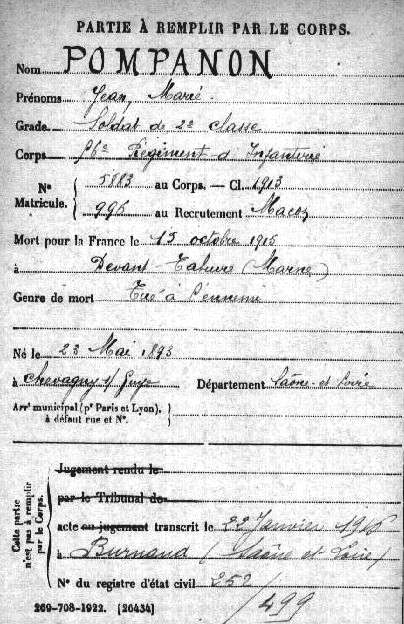 PARTIE À REMPLIR PAR LE CORPS.
Nom POMPANON
Prénoms Jean Marie
Grade Soldat de 2e classe
Corps Régiment d'Infanterie
No Matricule. 5883 au Corps. — Cl. 1913
995 au Recrutement Macon
Mort pour la France le 15 octobre 1915
à Devant Tahure (Marne)
Genre de mort Tué à l'ennemi
Né le 23 Mai 1893
à Chevagny s/ Guye Département Saône-et-Loire
Arrt municipal (pr Paris et Lyon),
à défaut rue et No.
Cette partie n'est pas à remplir par le Corps.
Jugement rendu le
par le Tribunal de
acte ou jugement transcrit le 22 Janvier 1916
à Burnand (Saône et Loire)
No du registre d'état civil 252
/499
269-708-1922. [26434]